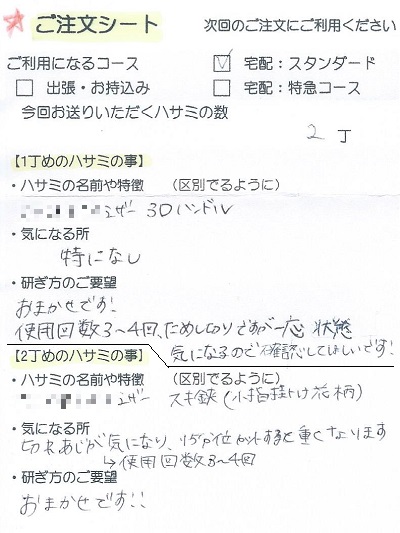 ☆ ご注文シート 次回のご注文にご利用ください
ご利用になるコース ☑ 宅配：スタンダード
□ 出張・お持込み □ 宅配：特急コース
今回お送りいただくハサミの数
2 丁
【1丁めのハサミの事】
・ハサミの名前や特徴 （区別でるように）
シザー 3Dハンドル
・気になる所
特になし
・研ぎ方のご要望
おまかせです!
使用回数3〜4回、ためし切りですが一応 状態
気になるので確認してほしいです!
【2丁めのハサミの事】
・ハサミの名前や特徴 （区別でるように）
シザー スキ鋏(小指掛け花柄)
・気になる所
切れあじが気になり、パネル位カットすると重くなります
↳使用回数3〜4回
・研ぎ方のご要望
おまかせです!!